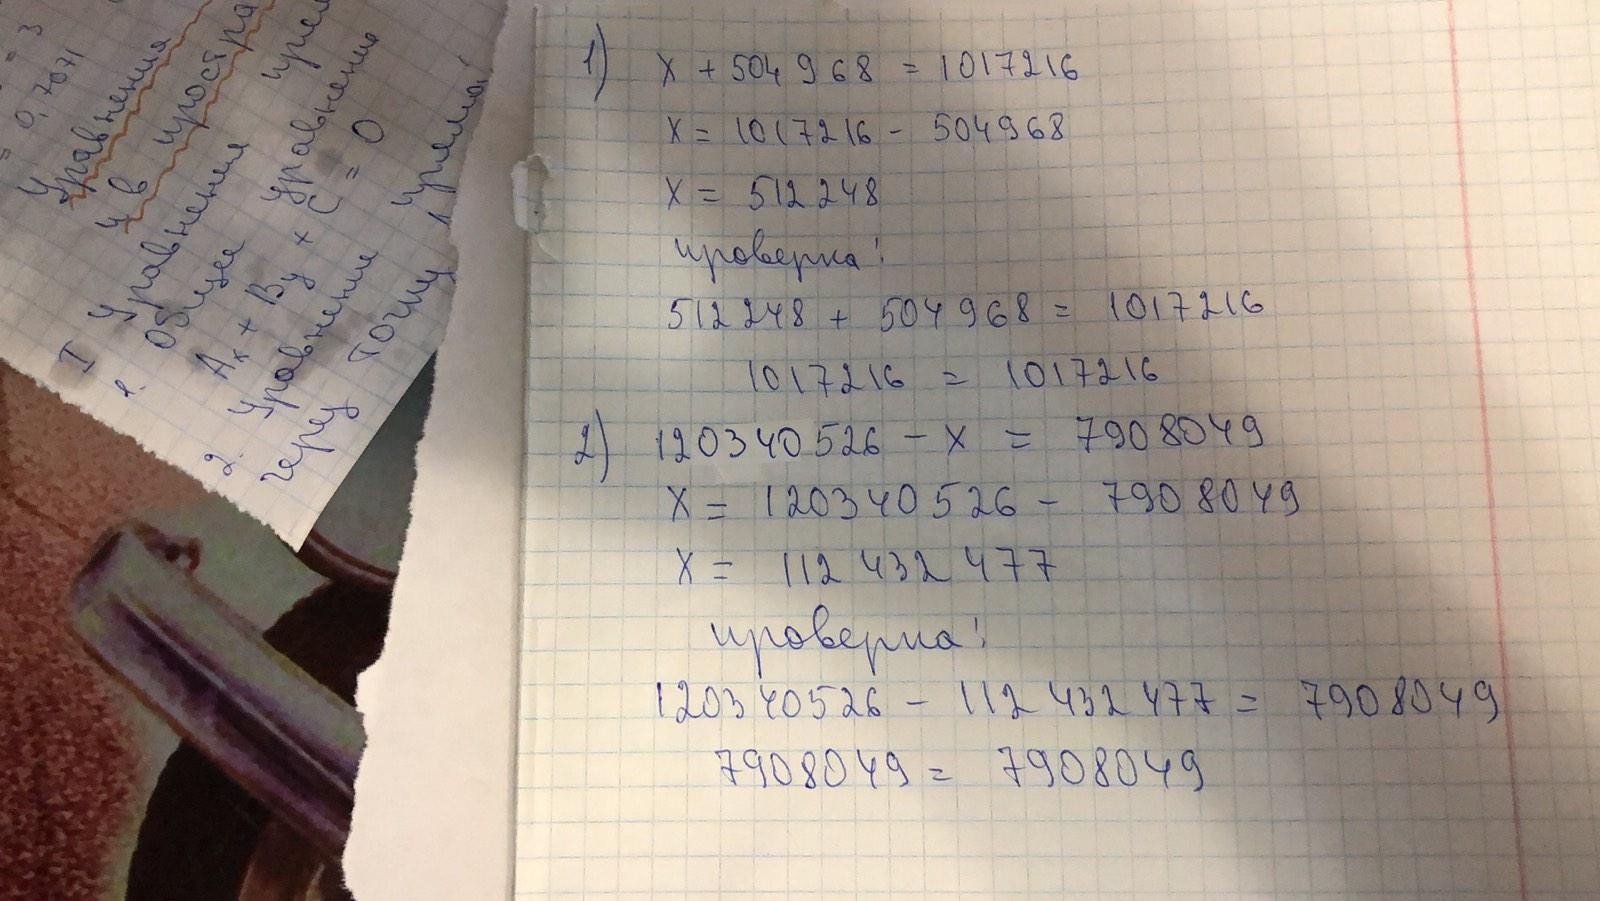 = 3
= 0,7071
Уравнения
и в простра
I Уравнения прям
1. Общее уравнение
Ax + By + C = 0
2. Уравнение прямой
через точку
1) x + 504 968 = 1017216
x = 1017216 - 504968
x = 512 248
проверка:
512 248 + 504 968 = 1017216
1017216 = 1017216
2) 120340526 - x = 7908049
x = 120340526 - 7908049
x = 112 432 477
проверка:
120340526 - 112 432 477 = 7908049
7908049 = 7908049